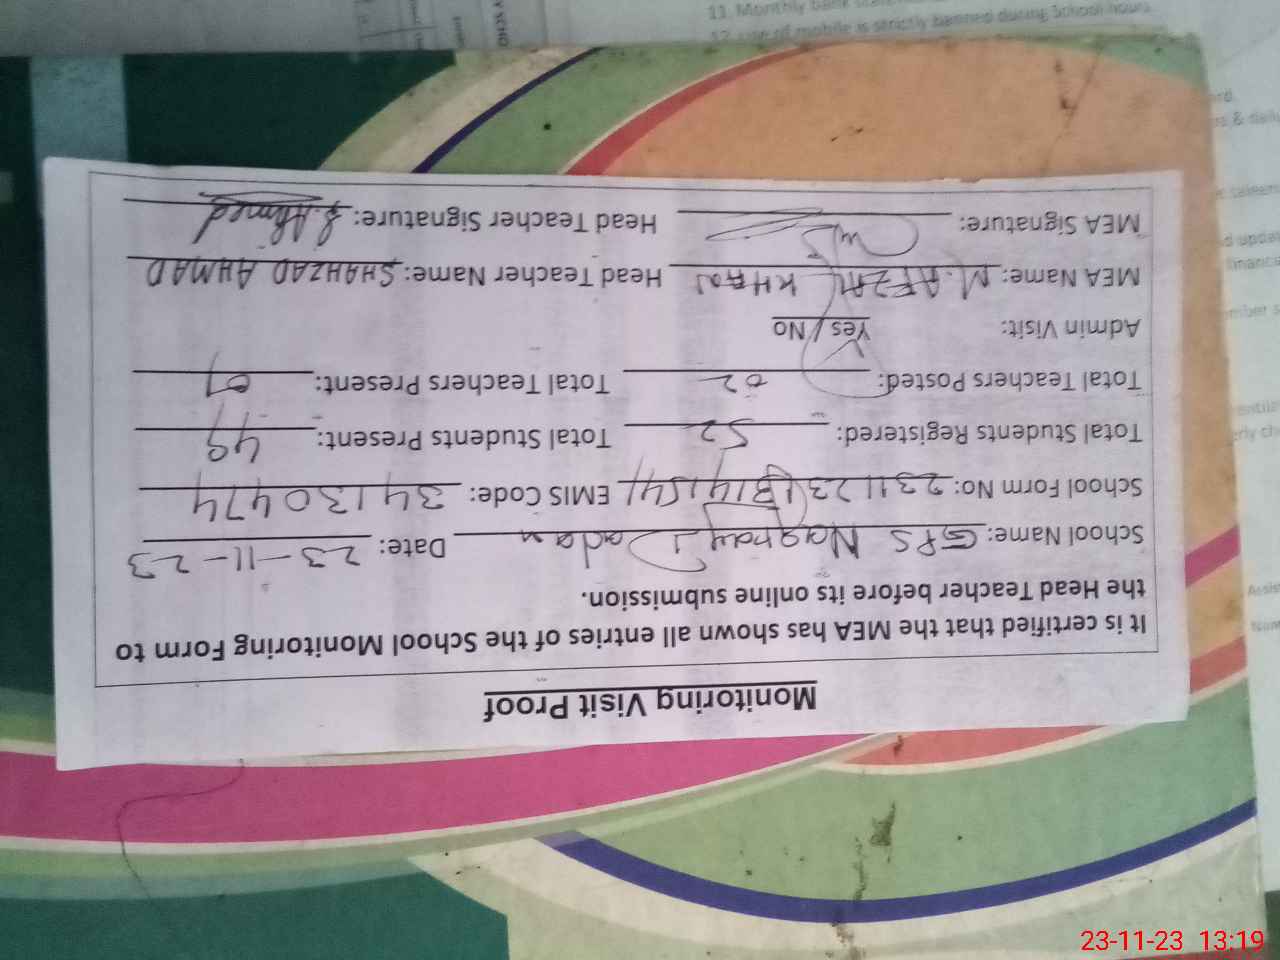 Monitoring Visit Proof
It is certified that the MEA has shown all entries of the School Monitoring Form to
the Head Teacher before its online submission.
School Name: GPS Nagray Dadan Date: 23-11-23
School Form No: EMIS Code: 34130474
Total Students Registered: 52 Total Students Present: 49
Total Teachers Posted: 02 Total Teachers Present: 01
Admin Visit: Yes / No
MEA Name: M. AFZAL KHAN Head Teacher Name: SHAHZAD AHMAD
MEA Signature: Head Teacher Signature: S. Ahmed
11. Monthly bank
12. use of mobile is strictly banned during School hours
23-11-23 13:19